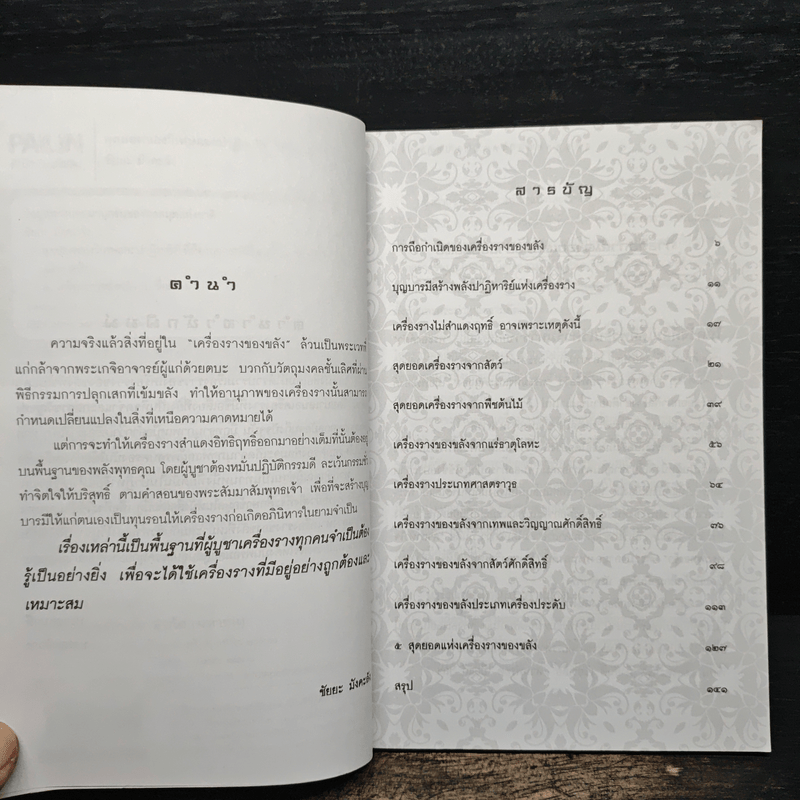 คำนำ
ความจริงแล้วสิ่งที่อยู่ใน "เครื่องรางของขลัง" ล้วนเป็นพระเวทที่
แก่กล้าจากพระเกจิอาจารย์ผู้แก่ด้วยตบะ บวกกับวัตถุมงคลชั้นเลิศที่ผ่าน
พิธีกรรมการปลุกเสกที่เข้มขลัง ทำให้อานุภาพของเครื่องรางนั้นสามารถ
กำหนดเปลี่ยนแปลงในสิ่งที่เหนือความคาดหมายได้
แต่การจะทำให้เครื่องรางสำแดงอิทธิฤทธิ์ออกมาอย่างเต็มที่นั้นต้องอยู่
บนพื้นฐานของพลังพุทธคุณ โดยผู้บูชาต้องหมั่นปฏิบัติกรรมดี ละเว้นกรรมชั่ว
ทำจิตใจให้บริสุทธิ์ ตามคำสอนของพระสัมมาสัมพุทธเจ้า เพื่อที่จะสร้างบุญ
บารมีให้แก่ตนเองเป็นทุนรอนให้เครื่องรางก่อเกิดอภินิหารในยามจำเป็น
เรื่องเหล่านี้เป็นพื้นฐานที่ผู้บูชาเครื่องรางทุกคนจำเป็นต้อง
รู้เป็นอย่างยิ่ง เพื่อจะได้ใช้เครื่องรางที่มีอยู่อย่างถูกต้องและ
เหมาะสม
ชัยยะ
สารบัญ
การถือกำเนิดของเครื่องรางของขลัง ๖
บุญบารมีสร้างพลังปาฏิหาริย์แห่งเครื่องราง ๑๑
เครื่องรางไม่สำแดงฤทธิ์ อาจเพราะเหตุดังนี้ ๑๗
สุดยอดเครื่องรางจากสัตว์ ๒๑
สุดยอดเครื่องรางจากพืชต้นไม้ ๓๙
เครื่องรางของขลังจากแร่ธาตุโลหะ ๕๖
เครื่องรางประเภทศาสตราวุธ ๖๔
เครื่องรางของขลังจากเทพและวิญญาณศักดิ์สิทธิ์ ๗๖
เครื่องรางของขลังจากสัตว์ศักดิ์สิทธิ์ ๙๘
เครื่องรางของขลังประเภทเครื่องประดับ ๑๑๓
๕ สุดยอดแห่งเครื่องรางของขลัง ๑๒๗
สรุป ๑๔๑